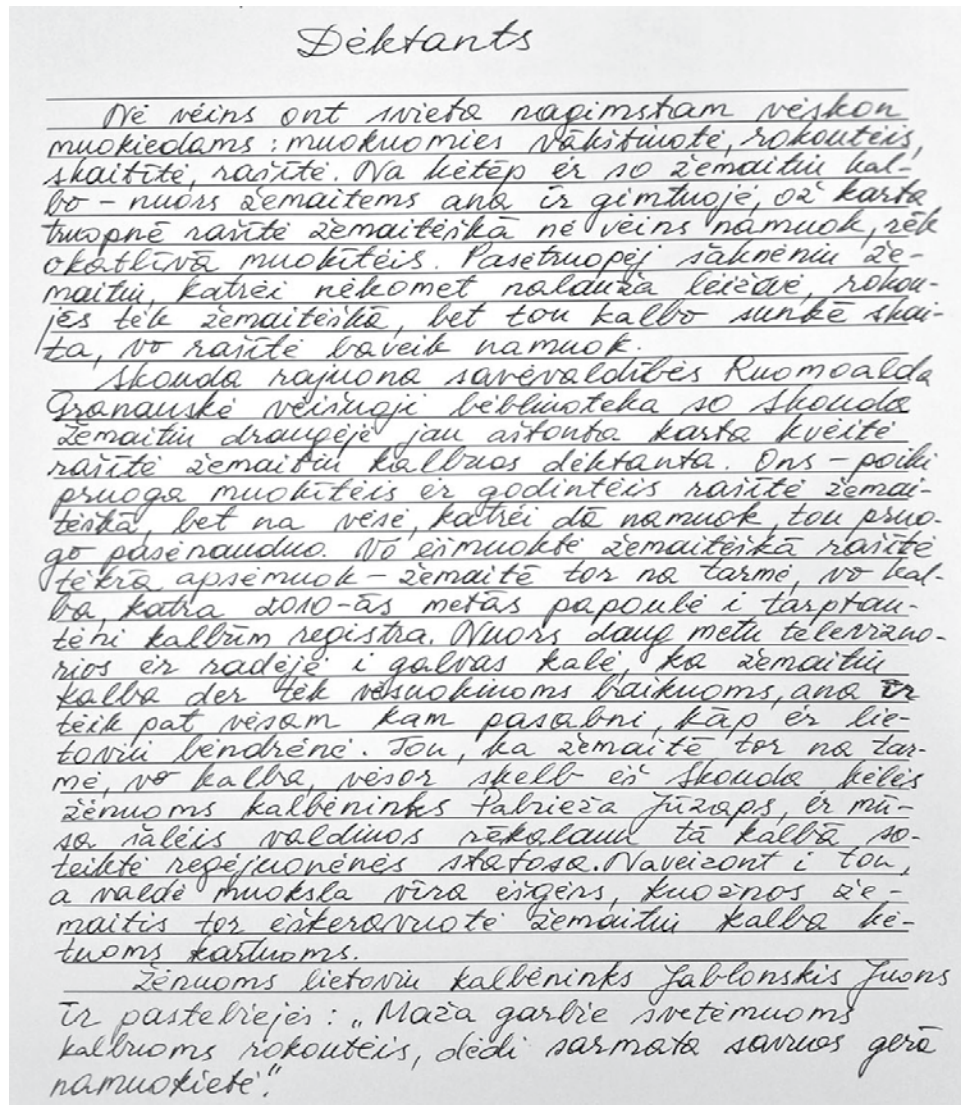 Dėktants
Nė vėins ont svieta nagimstam vėskon
muokiedams: muokuomies vākštiuotė, rokoutėis,
skaitītė, rašītė. Na kėtēp ėr so žemaitiu kal-
bo – nuors žemaitems ana īr gimtuojė, ož karta
truopnē rašītė žemaitėškā nė vėins namuok, rēk
okatlīvā muokītėis. Pasėtruopėj šaknėniu že-
maitiu, katrėi nėkomet nalauža lėižovė, rokou-
jės tėk žemaitėškā, bet tou kalbo sunkē skai-
ta, vo rašītė baveik namuok.
Skouda rajuona savėvaldībės Ruomoalda
Granauskė vėišuoji bėbliuoteka so Skouda
žemaitiu draugėjė jau aštonta karta kvėitė
rašītė žemaitiu kalbuos dėktanta. Ons – poiki
pruoga muokītėis ėr godintėis rašītė žemai-
tėškā, bet na vėsė, katrėi dā namuok, tou pruo-
go pasėnauduo. Vo ėšmuoktė žemaitėškā rašītė
tėkrā apsėmuok – žemaitē tor na tarmė, vo kal-
ba, katra 2010-ās metās papoulė i tarptau-
tėni kalbūm registra. Nuors daug metu televizuo-
rios ėr radėjė i galvas kalė, ka žemaitiu
kalba der tėk vėsuokiuoms baikuoms, ana īr
tėik pat vėsam kam pasabni, kāp ėr lie-
toviu bėndrėnė. Tou, ka žemaitē tor na tar-
mė, vo kalba, vėsor skelb ėš Skouda kėlės
žėnuoms kalbėninks Pabrieža Jūzaps, ėr mū-
sa šalėis valdiuos rēkalaun tā kalbā so-
teiktė regėjuonėnės statosa. Naveizont i tou,
a valdė muoksla vīra ėšgėrs, kuožnos že-
maitis tor ėškeravuotė žemaitiu kalba kė-
tuoms kartuoms.
Žėnuoms lietoviu kalbėninks Jablonskis Juons
īr pastebiejės: „Maža garbie svetėmuoms
kalbuoms rokoutėis, dėdi sarmata savuos gerā
namuokietė“.